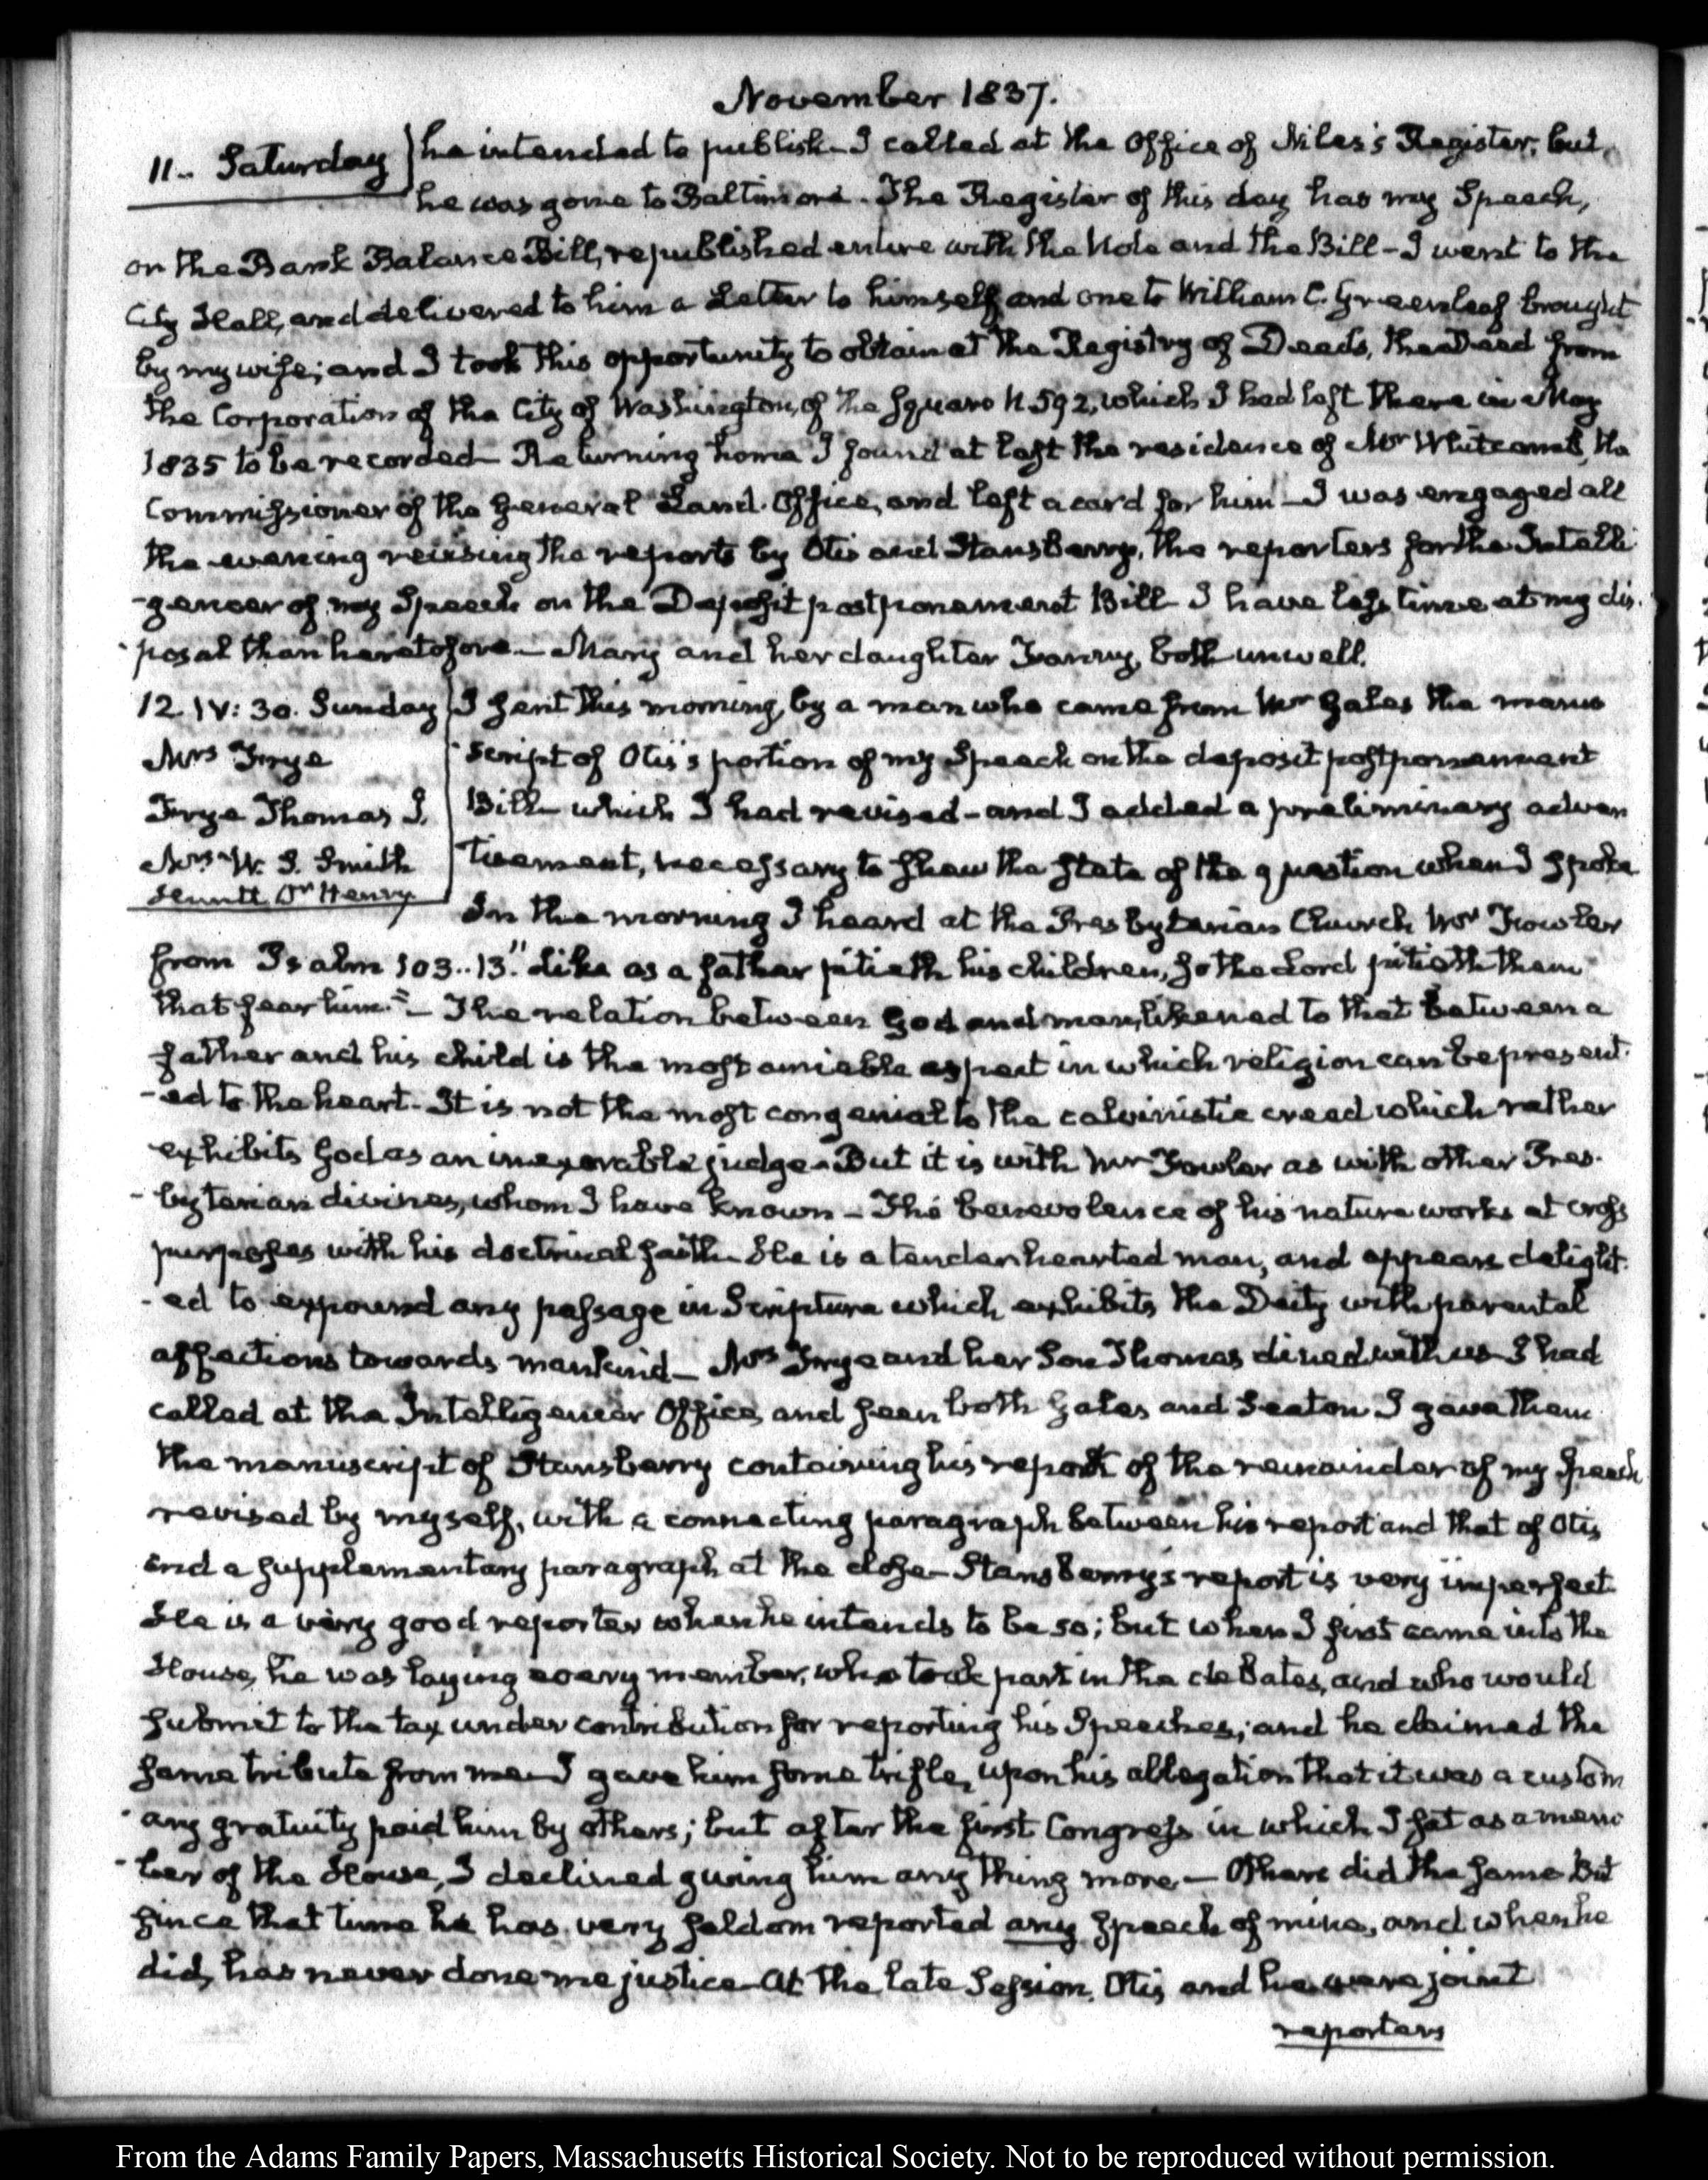 November 1837.
11.. Saturday
he intended to publish. I called at the Office of Niles's Register; but
he was gone to Baltimore. The Register of this day has my Speech,
on the Bank Balance Bill, republished entire with the Note and the Bill - I went to the
City Hall, and delivered to him a Letter to himself and one to William C. Greenleaf brought
by my wife; and I took this opportunity to obtain at the Registry of Deeds, the Deed from
the Corporation of the City of Washington, of the Square N. 592, which I had left there in May
1835 to be recorded - Returning home I found at last the residence of Mr Whitcomb, the
Commissioner of the General Land Office, and left a card for him - I was engaged all
the evening revising the reports by Otis and Stansberry, the reporters for the Intelli
-gencer of my Speech on the Deposit postponement Bill - I have less time at my dis-
posal than heretofore - Mary and her daughter Fanny, both unwell.
12. IV: 30. Sunday
Mrs Frye
Frye Thomas J.
Mrs W. S. Smith
Huntt Dr Henry
I sent this morning, by a man who came from Mr Gales the manu
script of Otis's portion of my Speech on the deposit postponement
Bill - which I had revised - and I added a preliminary adver
tisement, necessary to shew the state of the question when I spoke
In the morning I heard at the Presbyterian Church Mr Fowler
from Psalm 103..13. "Like as a father pitieth his children, so the Lord pitieth them
that fear him." - The relation between God and man, likened to that between a
father and his child is the most amiable aspect in which religion can be present-
-ed to the heart - It is not the most congenial to the calvinistic creed which rather
exhibits God as an inexorable judge - But it is with Mr Fowler as with other Pres-
-byterian divines, whom I have known - The benevolence of his nature works at cross
purposes with his doctrinal faith - He is a tender hearted man, and appears delight-
-ed to expound any passage in Scripture which exhibits the Deity with parental
affections towards mankind - Mrs Frye and her Son Thomas dined with us - I had
called at the Intelligencer Office, and seen both Gales and Seaton I gave them
the manuscript of Stansberry containing his report of the remainder of my Speech
revised by myself, with a connecting paragraph between his report and that of Otis
and a supplementary paragraph at the close - Stansberry's report is very imperfect
He is a very good reporter when he intends to be so; but when I first came into the
House, he was laying every member, who took part in the debates, and who would
submit to the tax under contribution for reporting his Speeches; and he claimed the
same tribute from me - I gave him some trifle, upon his allegation that it was a custom
-ary gratuity paid him by others; but after the first Congress in which I sat as a mem
-ber of the House, I declined giving him any thing more - Others did the same But
since that time he has very seldom reported any speech of mine, and when he
did, has never done me justice - At the late Session, Otis and he were joint
reporters
From the Adams Family Papers, Massachusetts Historical Society. Not to be reproduced without permission.